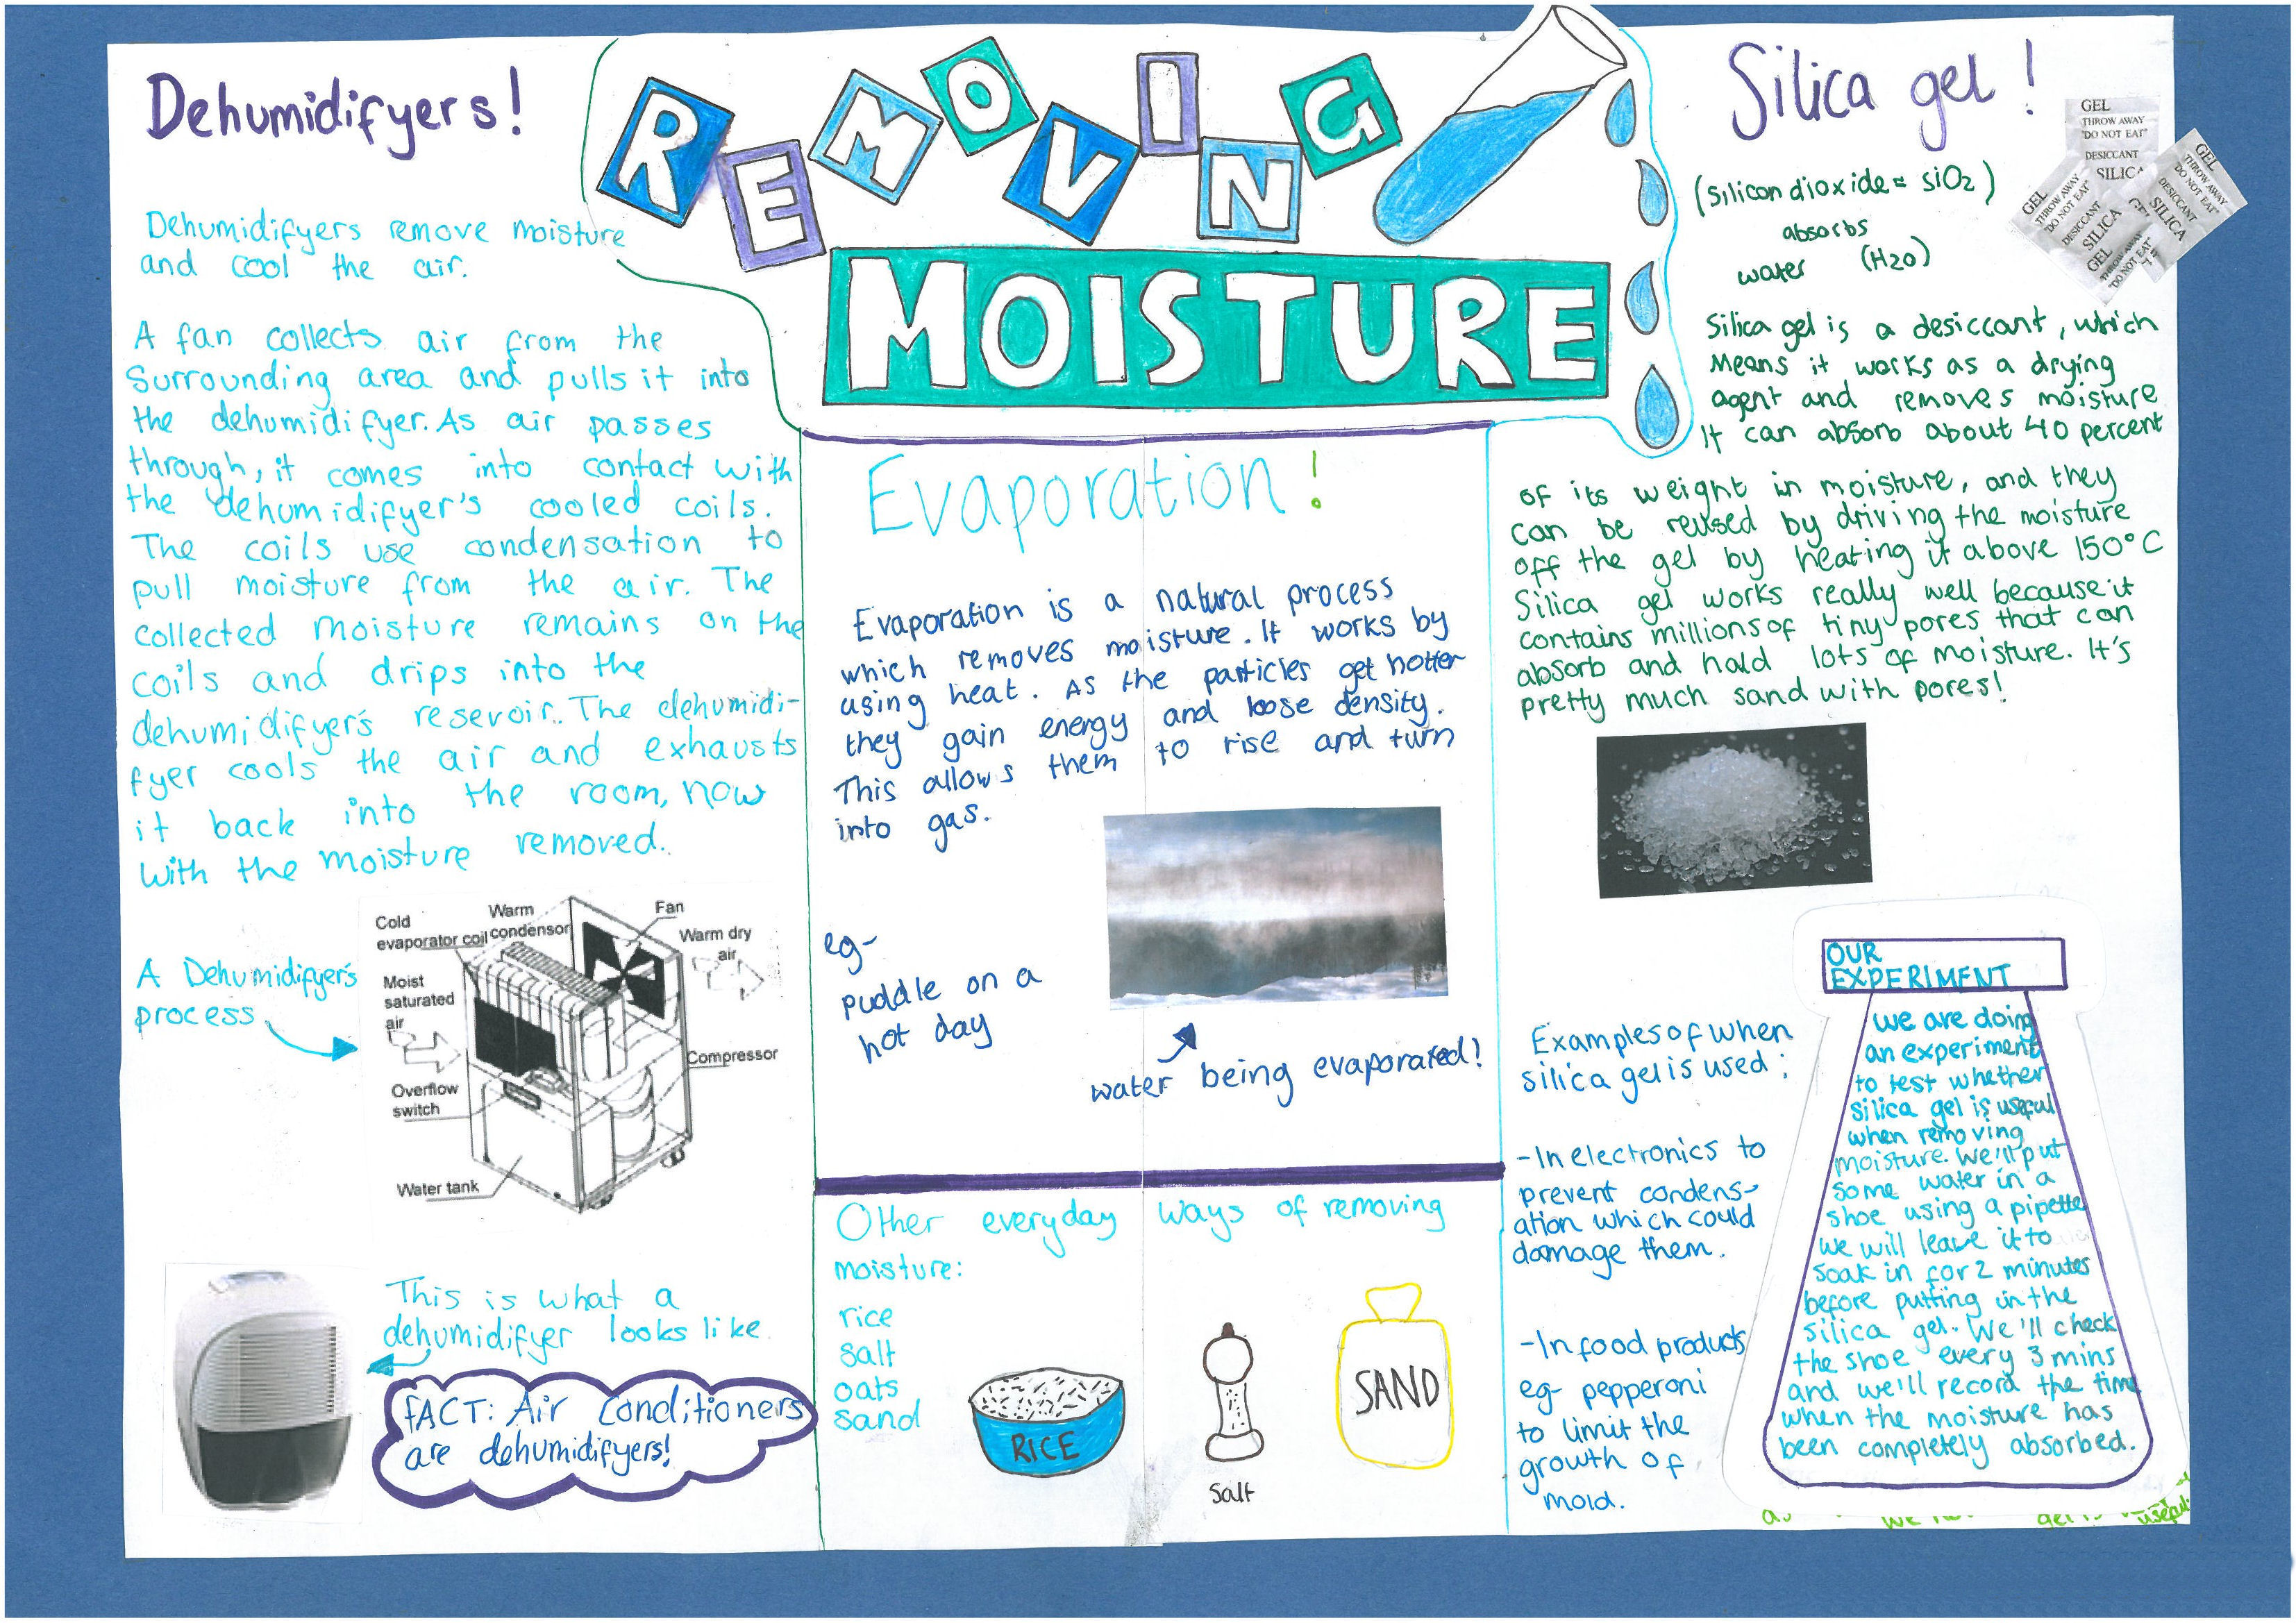 REMOVING
MOISTURE
Dehumidifyers!
Dehumidifyers remove moisture
and cool the air.
A fan collects air from the
surrounding area and pulls it into
the dehumidifyer. As air passes
through, it comes into contact with
the dehumidifyer's cooled coils.
The coils use condensation to
pull moisture from the air. The
collected moisture remains on the
coils and drips into the
dehumidifyer's resevoir. The dehumidi-
fyer cools the air and exhausts
it back into the room, now
with the moisture removed.
A Dehumidifyer's
process
Cold
evaporator coil
Warm
condensor
Fan
Warm dry
air
Moist
saturated
air
Compressor
Overflow
switch
Water tank
This is what a
dehumidifyer looks like
FACT: Air Conditioners
are dehumidifyers!
Evaporation!
Evaporation is a natural process
which removes moisture. It works by
using heat. As the particles get hotter
they gain energy and loose density.
This allows them to rise and turn
into gas.
eg-
puddle on a
hot day
water being evaporated!
Other everyday ways of removing
moisture:
rice
salt
oats
sand
RICE
Salt
SAND
Silica gel!
(Silicon dioxide = SiO2)
absorbs
water (H2O)
GEL
THROW AWAY
"DO NOT EAT"
DESICCANT
SILICA
GEL
THROW AWAY
"DO NOT EAT"
DESICCANT
SILICA
GEL
THROW AWAY
"DO NOT EAT"
GEL
THROW AWAY
"DO NOT EAT"
DESICCANT
SILICA
Silica gel is a desiccant, which
means it works as a drying
agent and removes moisture
It can absorb about 40 percent
of its weight in moisture, and they
can be reused by driving the moisture
off the gel by heating it above 150°C
Silica gel works really well because it
contains millions of tiny pores that can
absorb and hold lots of moisture. It's
pretty much sand with pores!
Examples of when
silica gel is used;
-In electronics to
prevent condens-
ation which could
damage them.
-In food products
eg- pepperoni
to limit the
growth of
mold.
OUR
EXPERIMENT
we are doing
an experiment
to test whether
silica gel is useful
when removing
moisture. We'll put
some water in a
shoe using a pipette
we will leave it to
soak in for 2 minutes
before putting in the
silica gel. We'll check
the shoe every 3 mins
and we'll record the time
when the moisture has
been completely absorbed.
useful